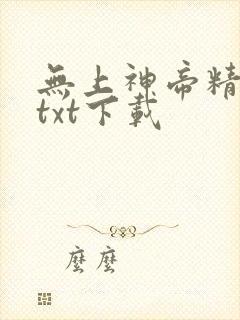 無上神帝精
txt下載
麼麼